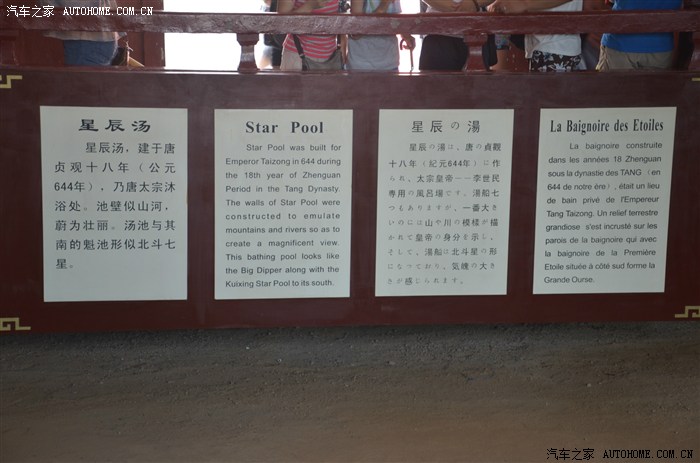 汽车之家 AUTOHOME.COM.CN
星辰汤
星辰汤,建于唐
贞观十八年(公元
644年),乃唐太宗沐
浴处。池壁似山河,
蔚为壮丽。汤池与其
南的魁池形似北斗七
星。
Star Pool
Star Pool was built for
Emperor Taizong in 644 during
the 18th year of Zhenguan
Period in the Tang Dynasty.
The walls of Star Pool were
constructed to emulate
mountains and rivers so as to
create a magnificent view.
This bathing pool looks like
the Big Dipper along with the
Kuixing Star Pool to its south.
星辰の湯
星辰の湯は、唐の貞觀
十八年(紀元644年)に作
られ、太宗皇帝--李世民
専用の風呂場です。湯船七
つもありますが、一番大き
いのには山や川の模様が描
かれて皇帝の身分を示し、
そして、湯船は北斗星の形
になっており、気魄の大き
さが感じられます。
La Baignoire des Etoiles
La baignoire construite
dans les années 18 Zhenguan
sous la dynastie des TANG (en
644 de notre ère), était un lieu
de bain privé de l'Empereur
Tang Taizong. Un relief terrestre
grandiose s'est incrusté sur les
parois de la baignoire qui avec
la baignoire de la Première
Etoile située à côté sud forme la
Grande Ourse.
汽车之家 AUTOHOME.COM.CN